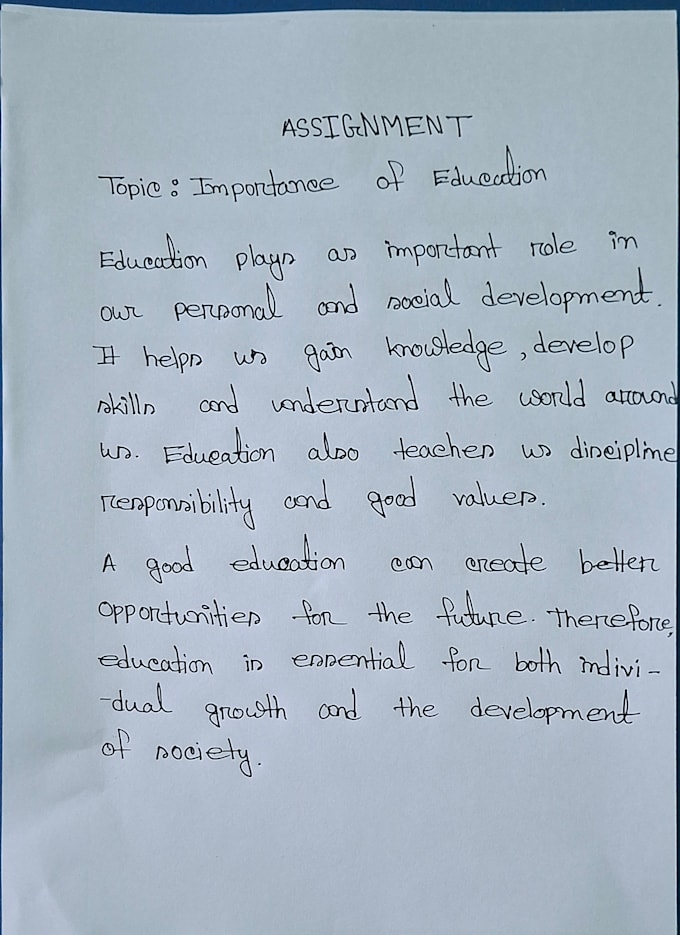 ASSIGNMENT
Topic: Importance of Education
Education plays as important role in
our personal and social development.
It helps us gain knowledge, develop
skills and understand the world around
us. Education also teaches us discipline
responsibility and good values.
A good education can create better
opportunities for the future. Therefore,
education is essential for both indivi-
-dual growth and the development
of society.